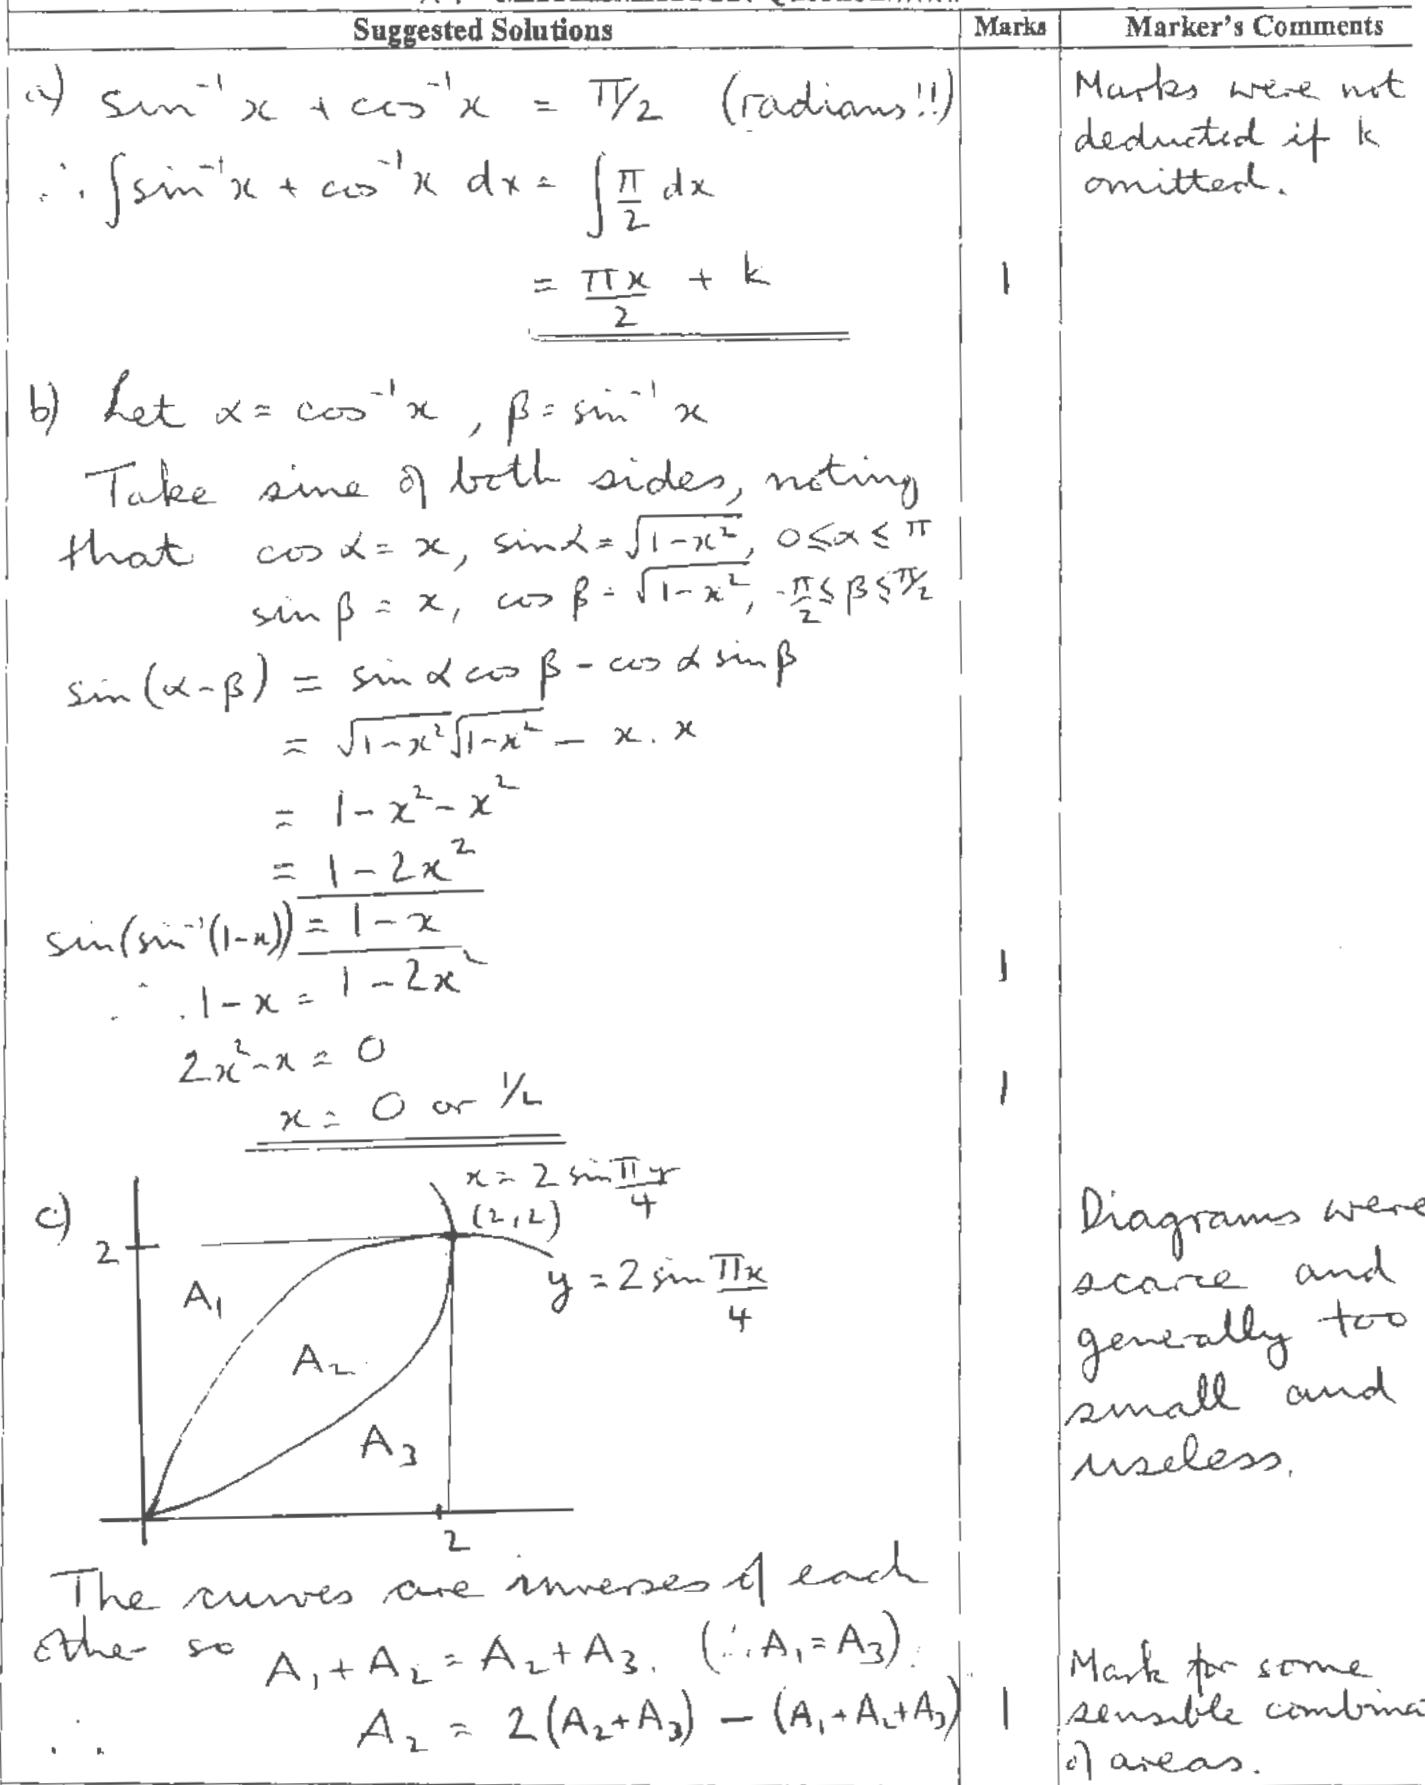 Suggested Solutions
Marks
Marker's Comments
a) sin⁻¹x + cos⁻¹x = π/2 (radians!!)
∴ ∫sin⁻¹x + cos⁻¹x dx = ∫π/2 dx
= πx/2 + k
1
Marks were not
deducted if k
omitted.
b) Let α = cos⁻¹x, β = sin⁻¹x
Take sine of both sides, noting
that cos α = x, sin α = √(1-x²), 0≤α≤π
sin β = x, cos β = √(1-x²), -π/2≤β≤π/2
sin(α-β) = sin α cos β - cos α sin β
= √(1-x²)√(1-x²) - x.x
= 1-x²-x²
= 1-2x²
sin(sin⁻¹(1-x)) = 1-x
∴ 1-x = 1-2x²
1
2x²-x = 0
x = 0 or 1/2
1
c)
x = 2 sin πy/4
(2,2)
2
y = 2 sin πx/4
A₁
A₂
A₃
2
Diagrams were
scarce and
generally too
small and
useless.
The curves are inverses of each
other so A₁+A₂ = A₂+A₃. (∴A₁=A₃).
∴ A₂ = 2(A₂+A₃) - (A₁+A₂+A₃)
1
Mark for some
sensible combina
of areas.